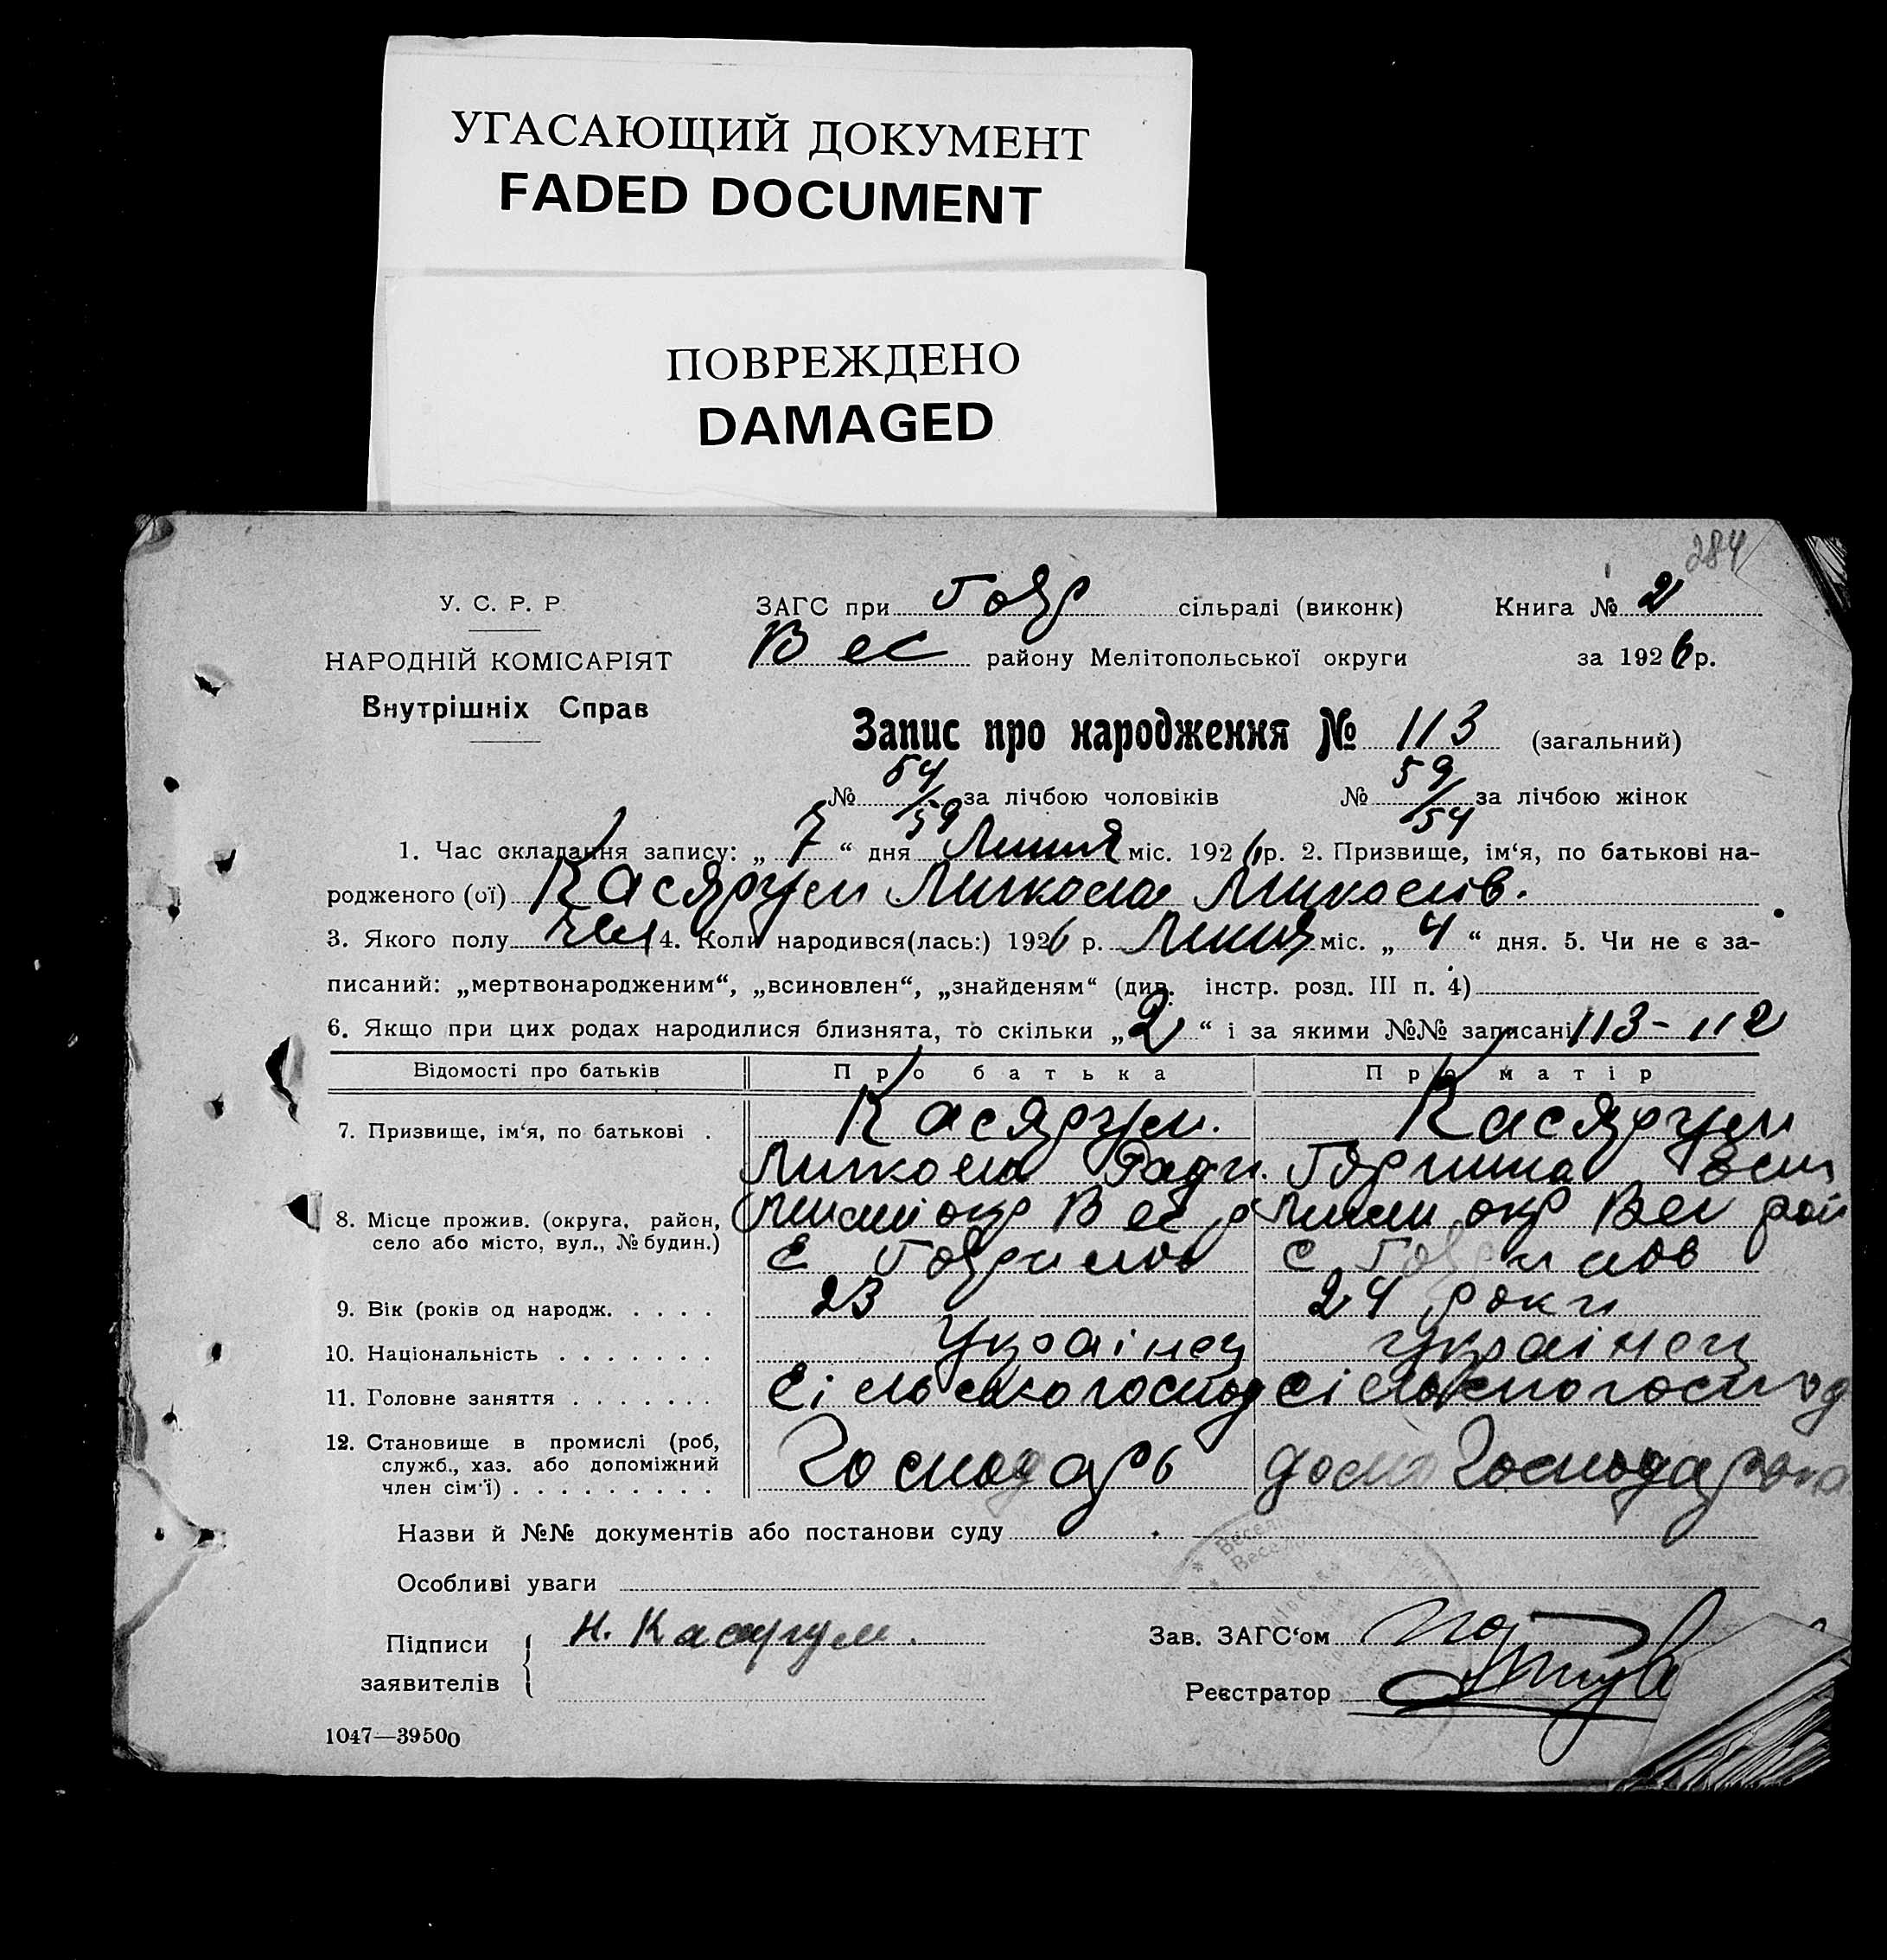 УГАСАЮЩИЙ ДОКУМЕНТ
FADED DOCUMENT
ПОВРЕЖДЕНО
DAMAGED
284
У. С. Р. Р.
НАРОДНІЙ КОМІСАРІЯТ
Внутрішніх Справ
ЗАГС при Гавр сільраді (виконк) Книга № 2
Вес району Мелітопольської округи за 1926 р.
Запис про народження № 113 (загальний)
№ 54/59 за лічбою чоловіків № 59/54 за лічбою жінок
1. Час складання запису: „ 7 “ дня Липня міс. 1926 р. 2. Призвище, ім‘я, по батькові на-
родженого (ої) Касяргум Микола Миколів.
3. Якого полу чол 4. Коли народився(лась:) 1926 р. Липня міс. „ 4 “ дня. 5. Чи не є за-
писаний: „мертвонародженим“, „всиновлен“, „знайденям“ (див. інстр. розд. III п. 4)
6. Якщо при цих родах народилися близнята, то скільки „ 2 “ і за якими №№ записані 113-112
Відомості про батьків Про батька Про матір
7. Призвище, ім‘я, по батькові . Касяргум. Касяргум
Микола
8. Місце прожив. (округа, район, село або місто, вул., № будин.) окр Вес р окр Вес рай
с Гаврилов с Гаврилов
9. Вік (років од народж. . . . . 23 24 роки
10. Національність . . . . . . . Українец українец
11. Головне заняття . . . . . . . Сільськогоспод сільськогоспод
12. Становище в промислі (роб, служб., хаз. або допоміжний член сім‘ї) . . . . . . . . . Господарь Господарока
Назви й №№ документів або постанови суду
Особливі уваги
Підписи заявителів Н. Касяргум.
Зав. ЗАГС‘ом
Реєстратор
1047—39500